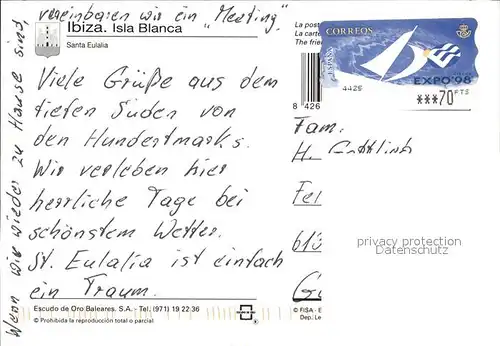 vereinbaren wir ein "Meeting".
Ibiza. Isla Blanca
Santa Eulalia
Viele Grüße aus dem
tiefen Süden von
den Hundertmarks.
Wir verleben hier
herrliche Tage bei
schönstem Wetter.
St. Eulalia ist einfach
ein Traum.
Wenn wir wieder zu Hause sind,
Escudo de Oro Baleares. S.A. - Tel: (971) 19 22 36
© Prohibida la reproducción total o parcial
La posta
La carte
The frien
CORREOS
ESPAÑA
EXPO'98
4426
***70 PTS
8 426
Fam.
H.
Fe
610
G
© FISA - E
Dep. Le
privacy protection
Datenschutz